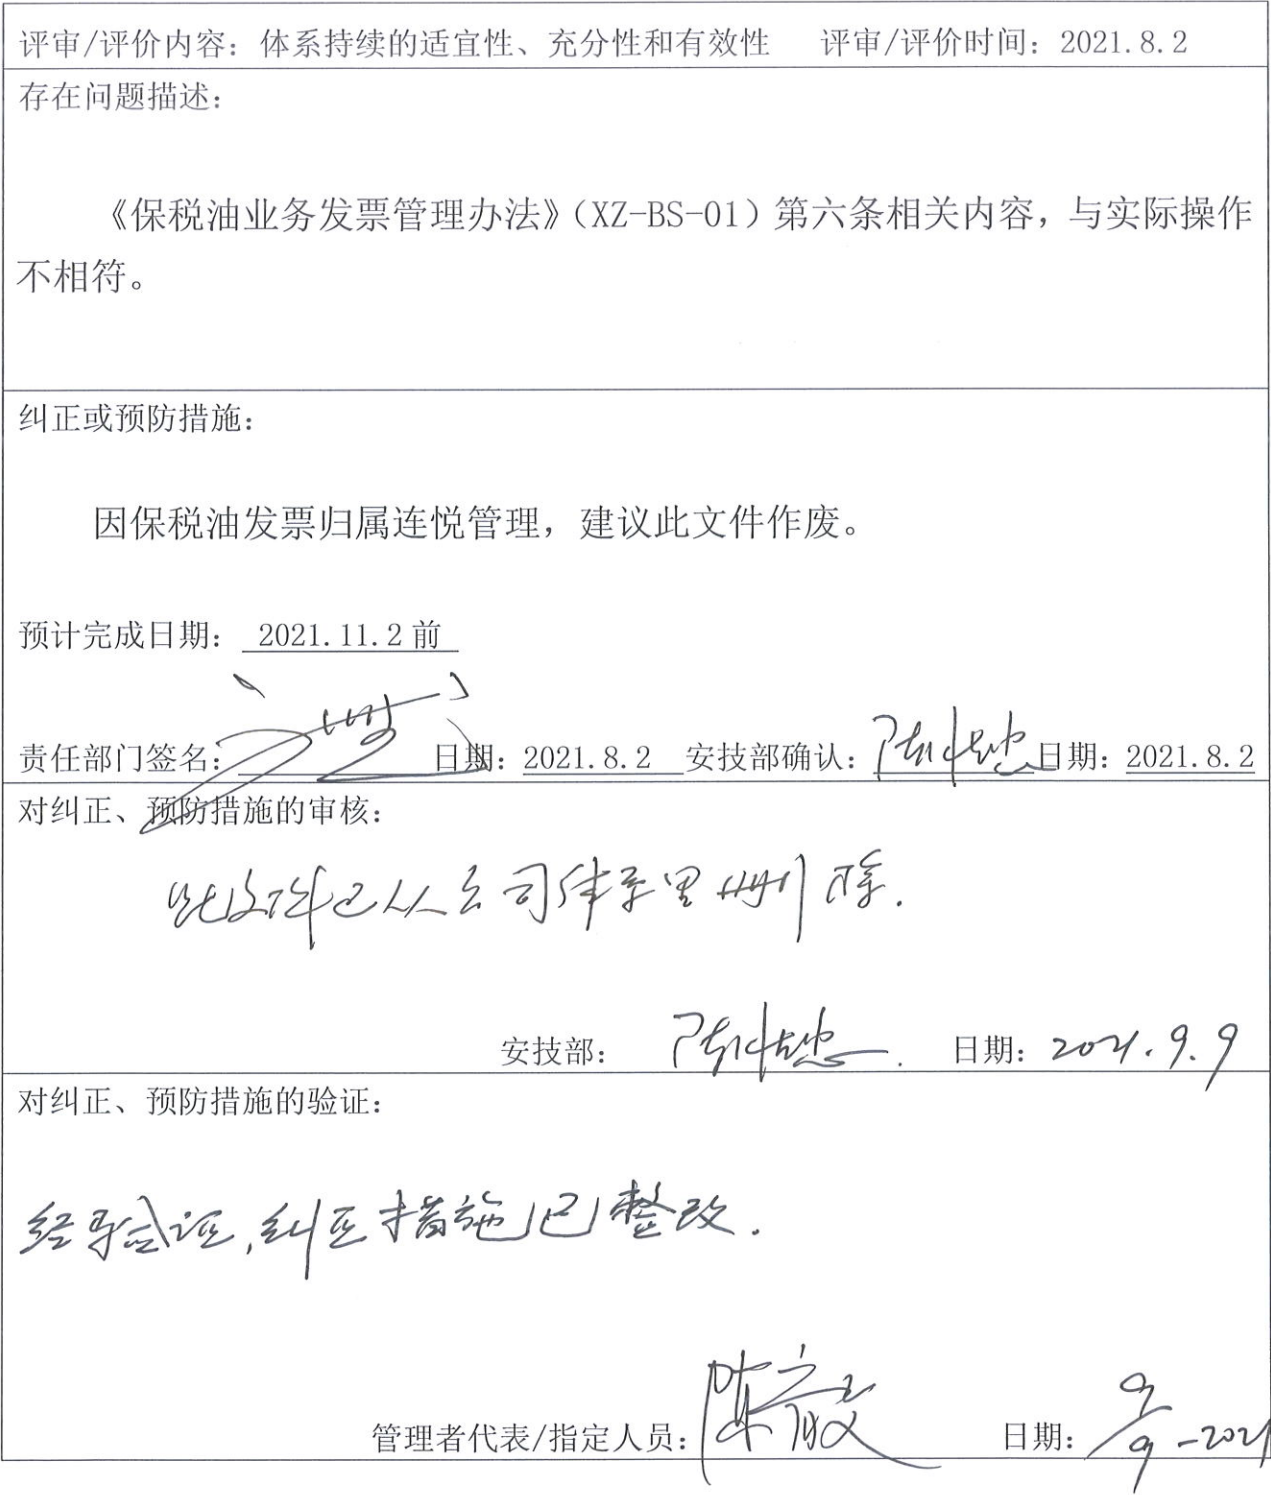 评审/评价内容：体系持续的适宜性、充分性和有效性 评审/评价时间：2021.8.2
存在问题描述：
《保税油业务发票管理办法》（XZ-BS-01）第六条相关内容，与实际操作
不相符。
纠正或预防措施：
因保税油发票归属连悦管理，建议此文件作废。
预计完成日期： 2021.11.2 前
责任部门签名： 日期：2021.8.2 安技部确认： 日期：2021.8.2
对纠正、预防措施的审核：
此文件已从公司体系里删除.
安技部： 日期：2021.9.9
对纠正、预防措施的验证：
经验证,纠正措施已整改.
管理者代表/指定人员： 日期：9/9-2021